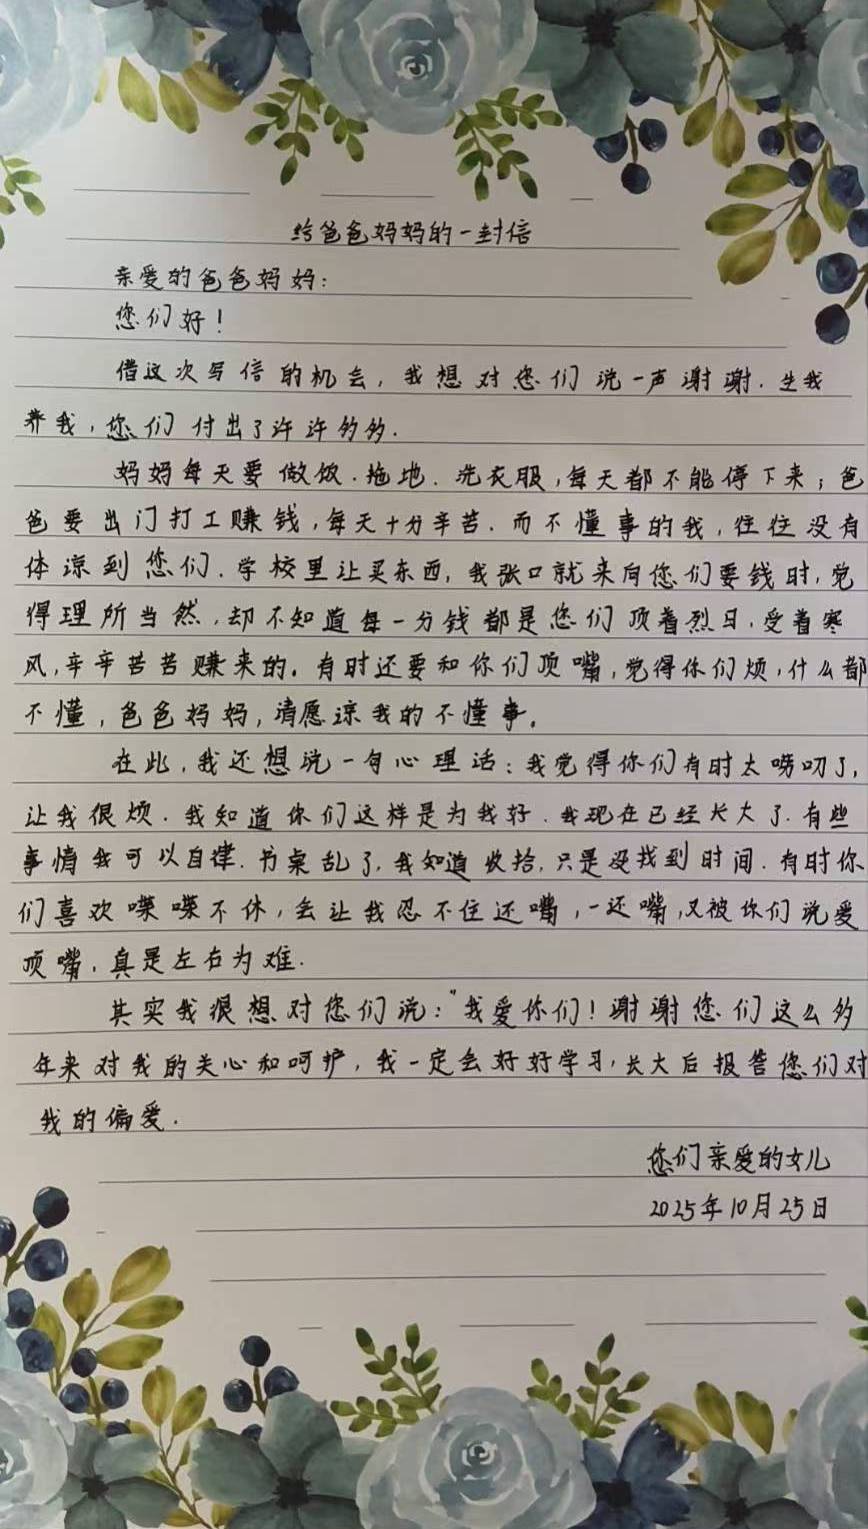 给爸爸妈妈的一封信
亲爱的爸爸妈妈：
您们好！
借这次写信的机会，我想对您们说一声谢谢.生我
养我，您们付出了许许多多.
妈妈每天要做饭.拖地.洗衣服，每天都不能停下来；爸
爸要出门打工赚钱，每天十分辛苦.而不懂事的我，往往没有
体谅到您们.学校里让买东西，我张口就来向您们要钱时，觉
得理所当然，却不知道每一分钱都是您们顶着烈日，受着寒
风，辛辛苦苦赚来的。有时还要和你们顶嘴，觉得你们烦，什么都
不懂，爸爸妈妈，请愿谅我的不懂事。
在此，我还想说一句心理话：我觉得你们有时太唠叨了，
让我很烦.我知道你们这样是为我好.我现在已经长大了.有些
事情我可以自律.书桌乱了，我知道收拾，只是没找到时间.有时你
们喜欢喋喋不休，会让我忍不住还嘴，一还嘴，又被你们说爱
顶嘴，真是左右为难.
其实我很想对您们说："我爱你们！谢谢您们这么多
年来对我的关心和呵护，我一定会好好学习，长大后报答您们对
我的偏爱.
您们亲爱的女儿
2025年10月25日